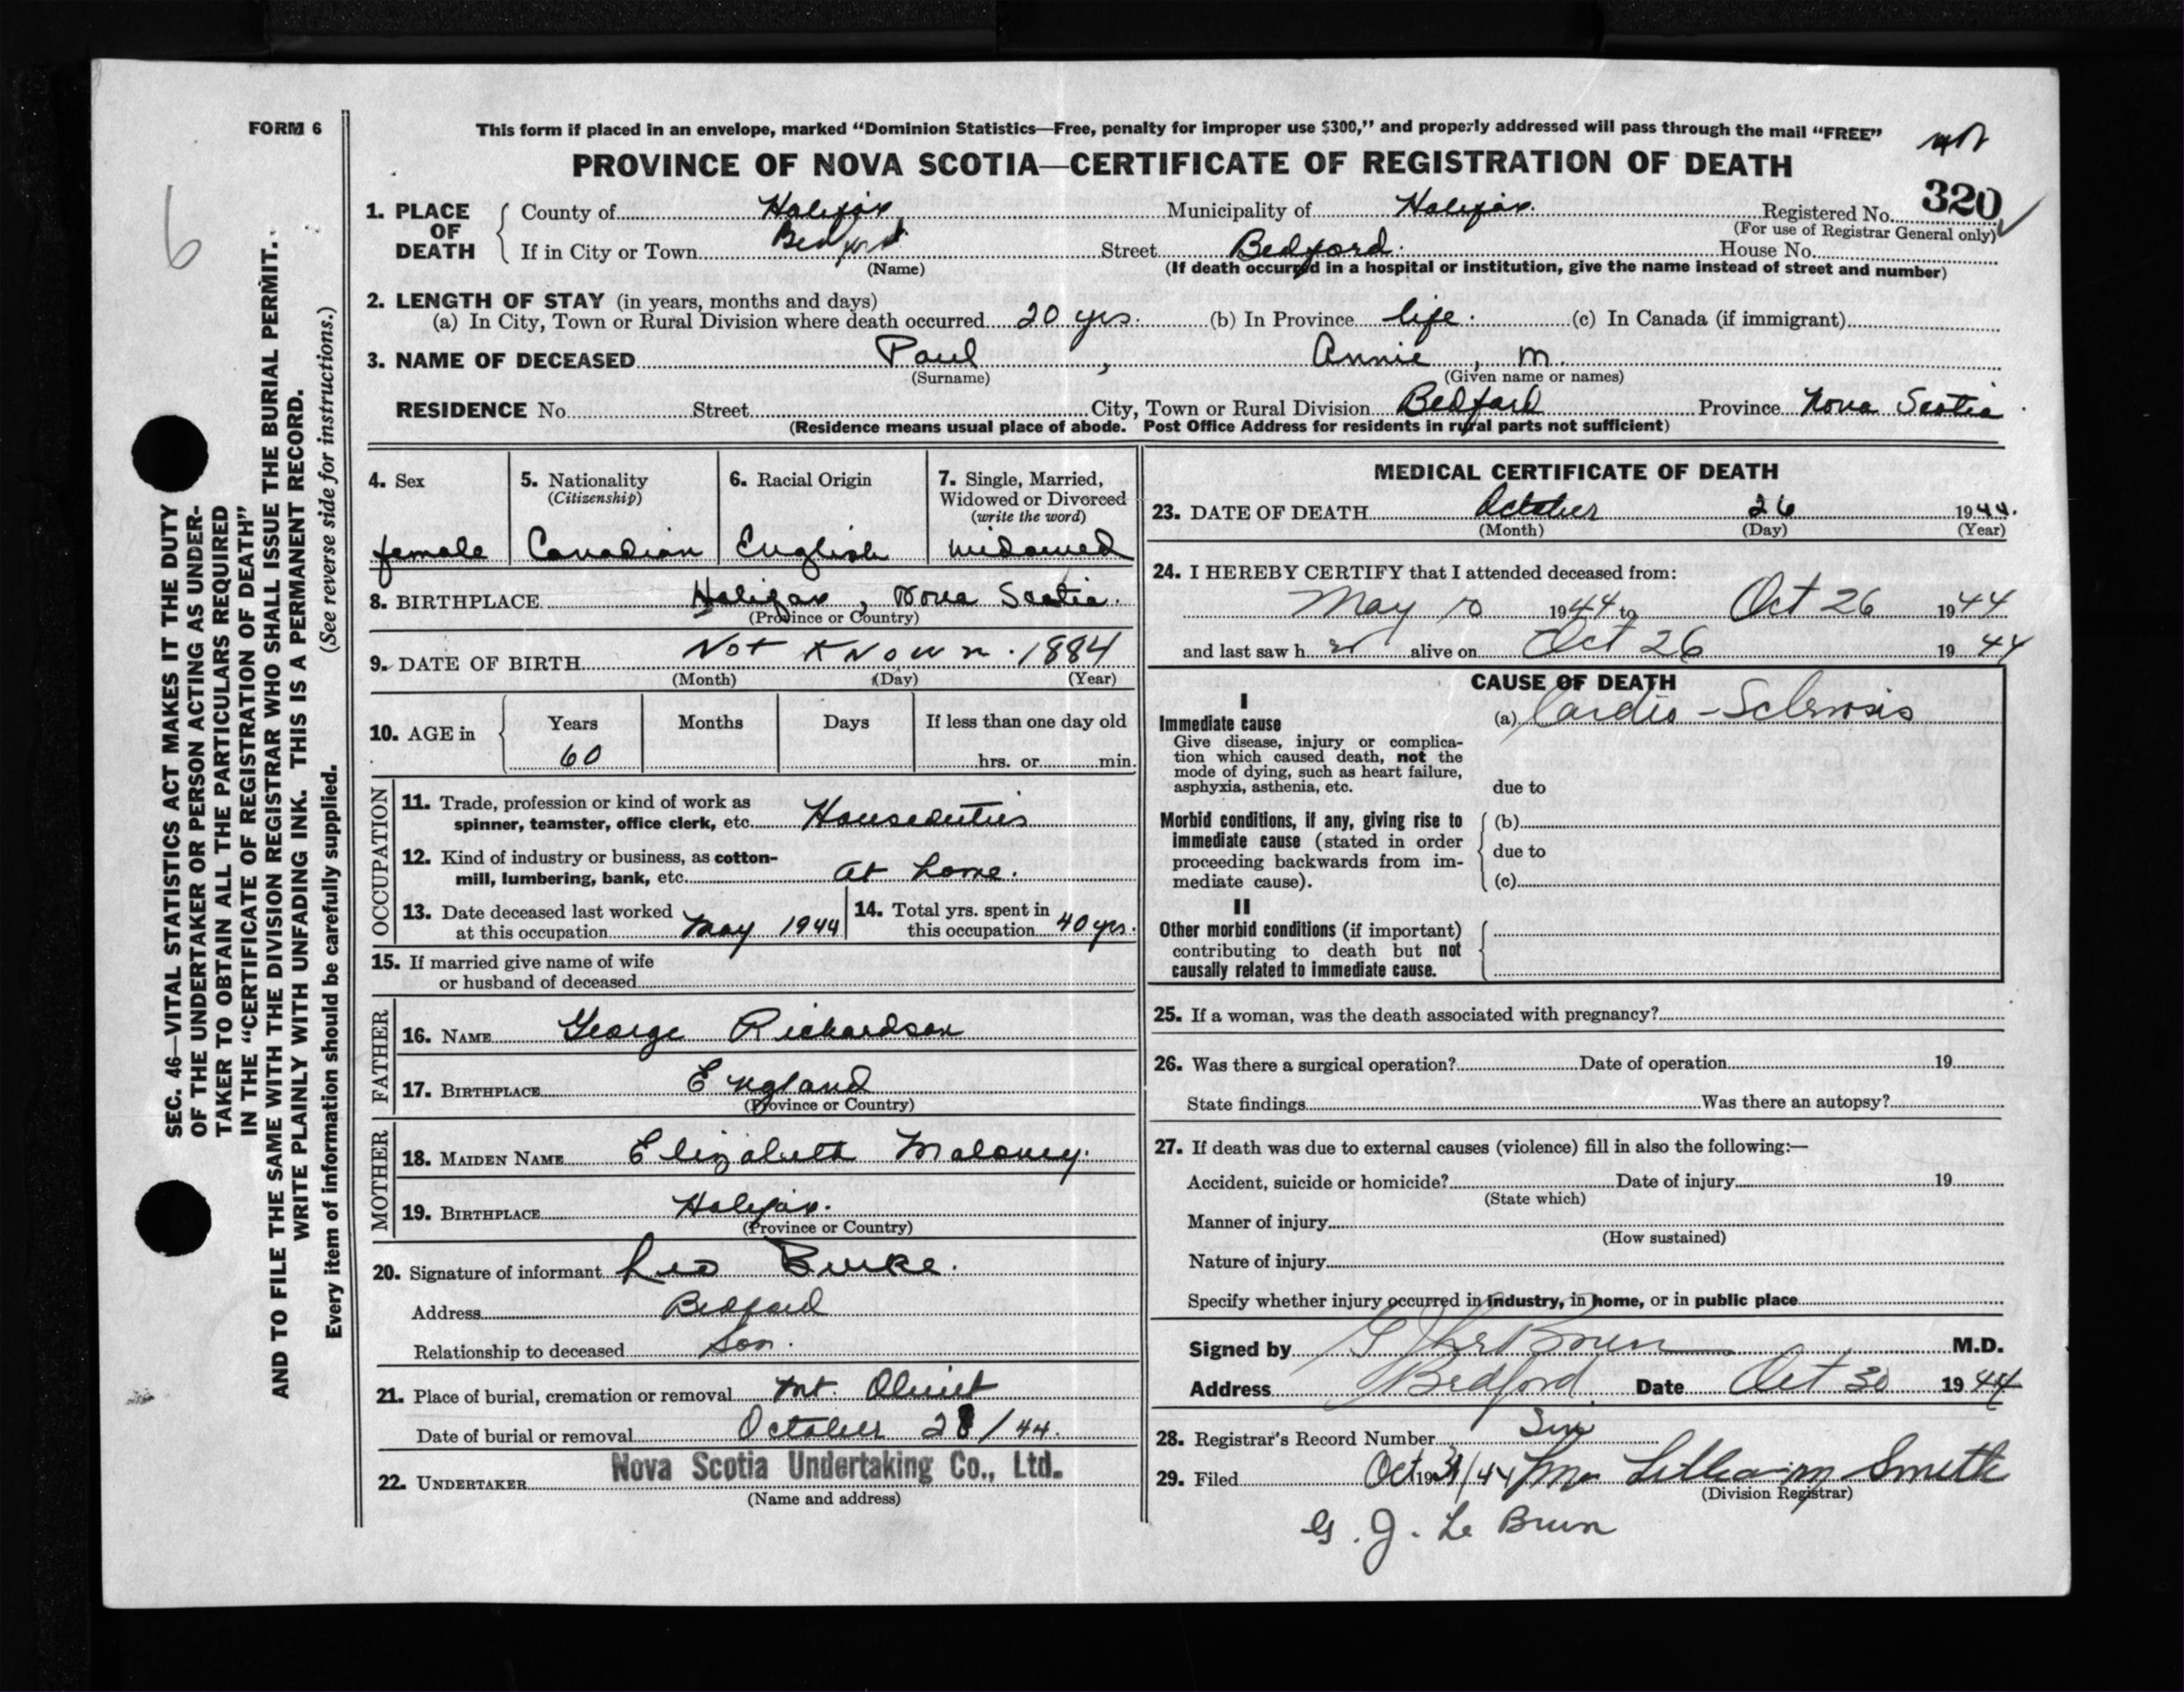 FORM 6
This form if placed in an envelope, marked “Dominion Statistics—Free, penalty for improper use $300,” and properly addressed will pass through the mail “FREE”
PROVINCE OF NOVA SCOTIA—CERTIFICATE OF REGISTRATION OF DEATH
6
SEC. 46—VITAL STATISTICS ACT MAKES IT THE DUTY
OF THE UNDERTAKER OR PERSON ACTING AS UNDER-
TAKER TO OBTAIN ALL THE PARTICULARS REQUIRED
IN THE “CERTIFICATE OF REGISTRATION OF DEATH”
AND TO FILE THE SAME WITH THE DIVISION REGISTRAR WHO SHALL ISSUE THE BURIAL PERMIT.
WRITE PLAINLY WITH UNFADING INK. THIS IS A PERMANENT RECORD.
Every item of information should be carefully supplied. (See reverse side for instructions.)
1. PLACE OF DEATH
County of Halifax, Municipality of Halifax. Registered No. 320
(For use of Registrar General only)
If in City or Town Bedford Street Bedford. House No.
(Name) (If death occurred in a hospital or institution, give the name instead of street and number)
2. LENGTH OF STAY (in years, months and days)
(a) In City, Town or Rural Division where death occurred 20 yrs. (b) In Province life. (c) In Canada (if immigrant)
3. NAME OF DECEASED Paul, Annie, M.
(Surname) (Given name or names)
RESIDENCE No. Street City, Town or Rural Division Bedford Province Nova Scotia
(Residence means usual place of abode. Post Office Address for residents in rural parts not sufficient)
4. Sex
female
5. Nationality
(Citizenship)
Canadian
6. Racial Origin
English
7. Single, Married,
Widowed or Divorced
(write the word)
widowed
8. BIRTHPLACE Halifax, Nova Scotia.
(Province or Country)
9. DATE OF BIRTH Not Known. 1884
(Month) (Day) (Year)
10. AGE in Years Months Days If less than one day old
60 hrs. or min.
OCCUPATION
11. Trade, profession or kind of work as
spinner, teamster, office clerk, etc. Houseduties
12. Kind of industry or business, as cotton-
mill, lumbering, bank, etc. at home.
13. Date deceased last worked
at this occupation May 1944
14. Total yrs. spent in
this occupation 40 yrs.
15. If married give name of wife
or husband of deceased
FATHER
16. NAME George Richardson
17. BIRTHPLACE England
(Province or Country)
MOTHER
18. MAIDEN NAME Elizabeth Maloney.
19. BIRTHPLACE Halifax.
(Province or Country)
20. Signature of informant Leo Burke.
Address Bedford
Relationship to deceased Son.
21. Place of burial, cremation or removal Mt. Olivet
Date of burial or removal October 28/44.
22. UNDERTAKER Nova Scotia Undertaking Co., Ltd.
(Name and address)
MEDICAL CERTIFICATE OF DEATH
23. DATE OF DEATH October 26 1944.
(Month) (Day) (Year)
24. I HEREBY CERTIFY that I attended deceased from:
May 10 1944 to Oct 26 1944
and last saw h er alive on Oct 26 1944
CAUSE OF DEATH
I
Immediate cause (a) Cardio-Sclerosis
Give disease, injury or complica-
tion which caused death, not the
mode of dying, such as heart failure,
asphyxia, asthenia, etc. due to
Morbid conditions, if any, giving rise to (b)
immediate cause (stated in order
proceeding backwards from im- due to
mediate cause). (c)
II
Other morbid conditions (if important)
contributing to death but not
causally related to immediate cause.
25. If a woman, was the death associated with pregnancy?
26. Was there a surgical operation? Date of operation 19
State findings Was there an autopsy?
27. If death was due to external causes (violence) fill in also the following:—
Accident, suicide or homicide? Date of injury 19
(State which)
Manner of injury
(How sustained)
Nature of injury
Specify whether injury occurred in industry, in home, or in public place
Signed by G J LeBrun M.D.
Address Bedford Date Oct 30 1944
28. Registrar's Record Number Six
29. Filed Oct 31/44 Lillian M Smith
(Division Registrar)
G. J. Le Brun